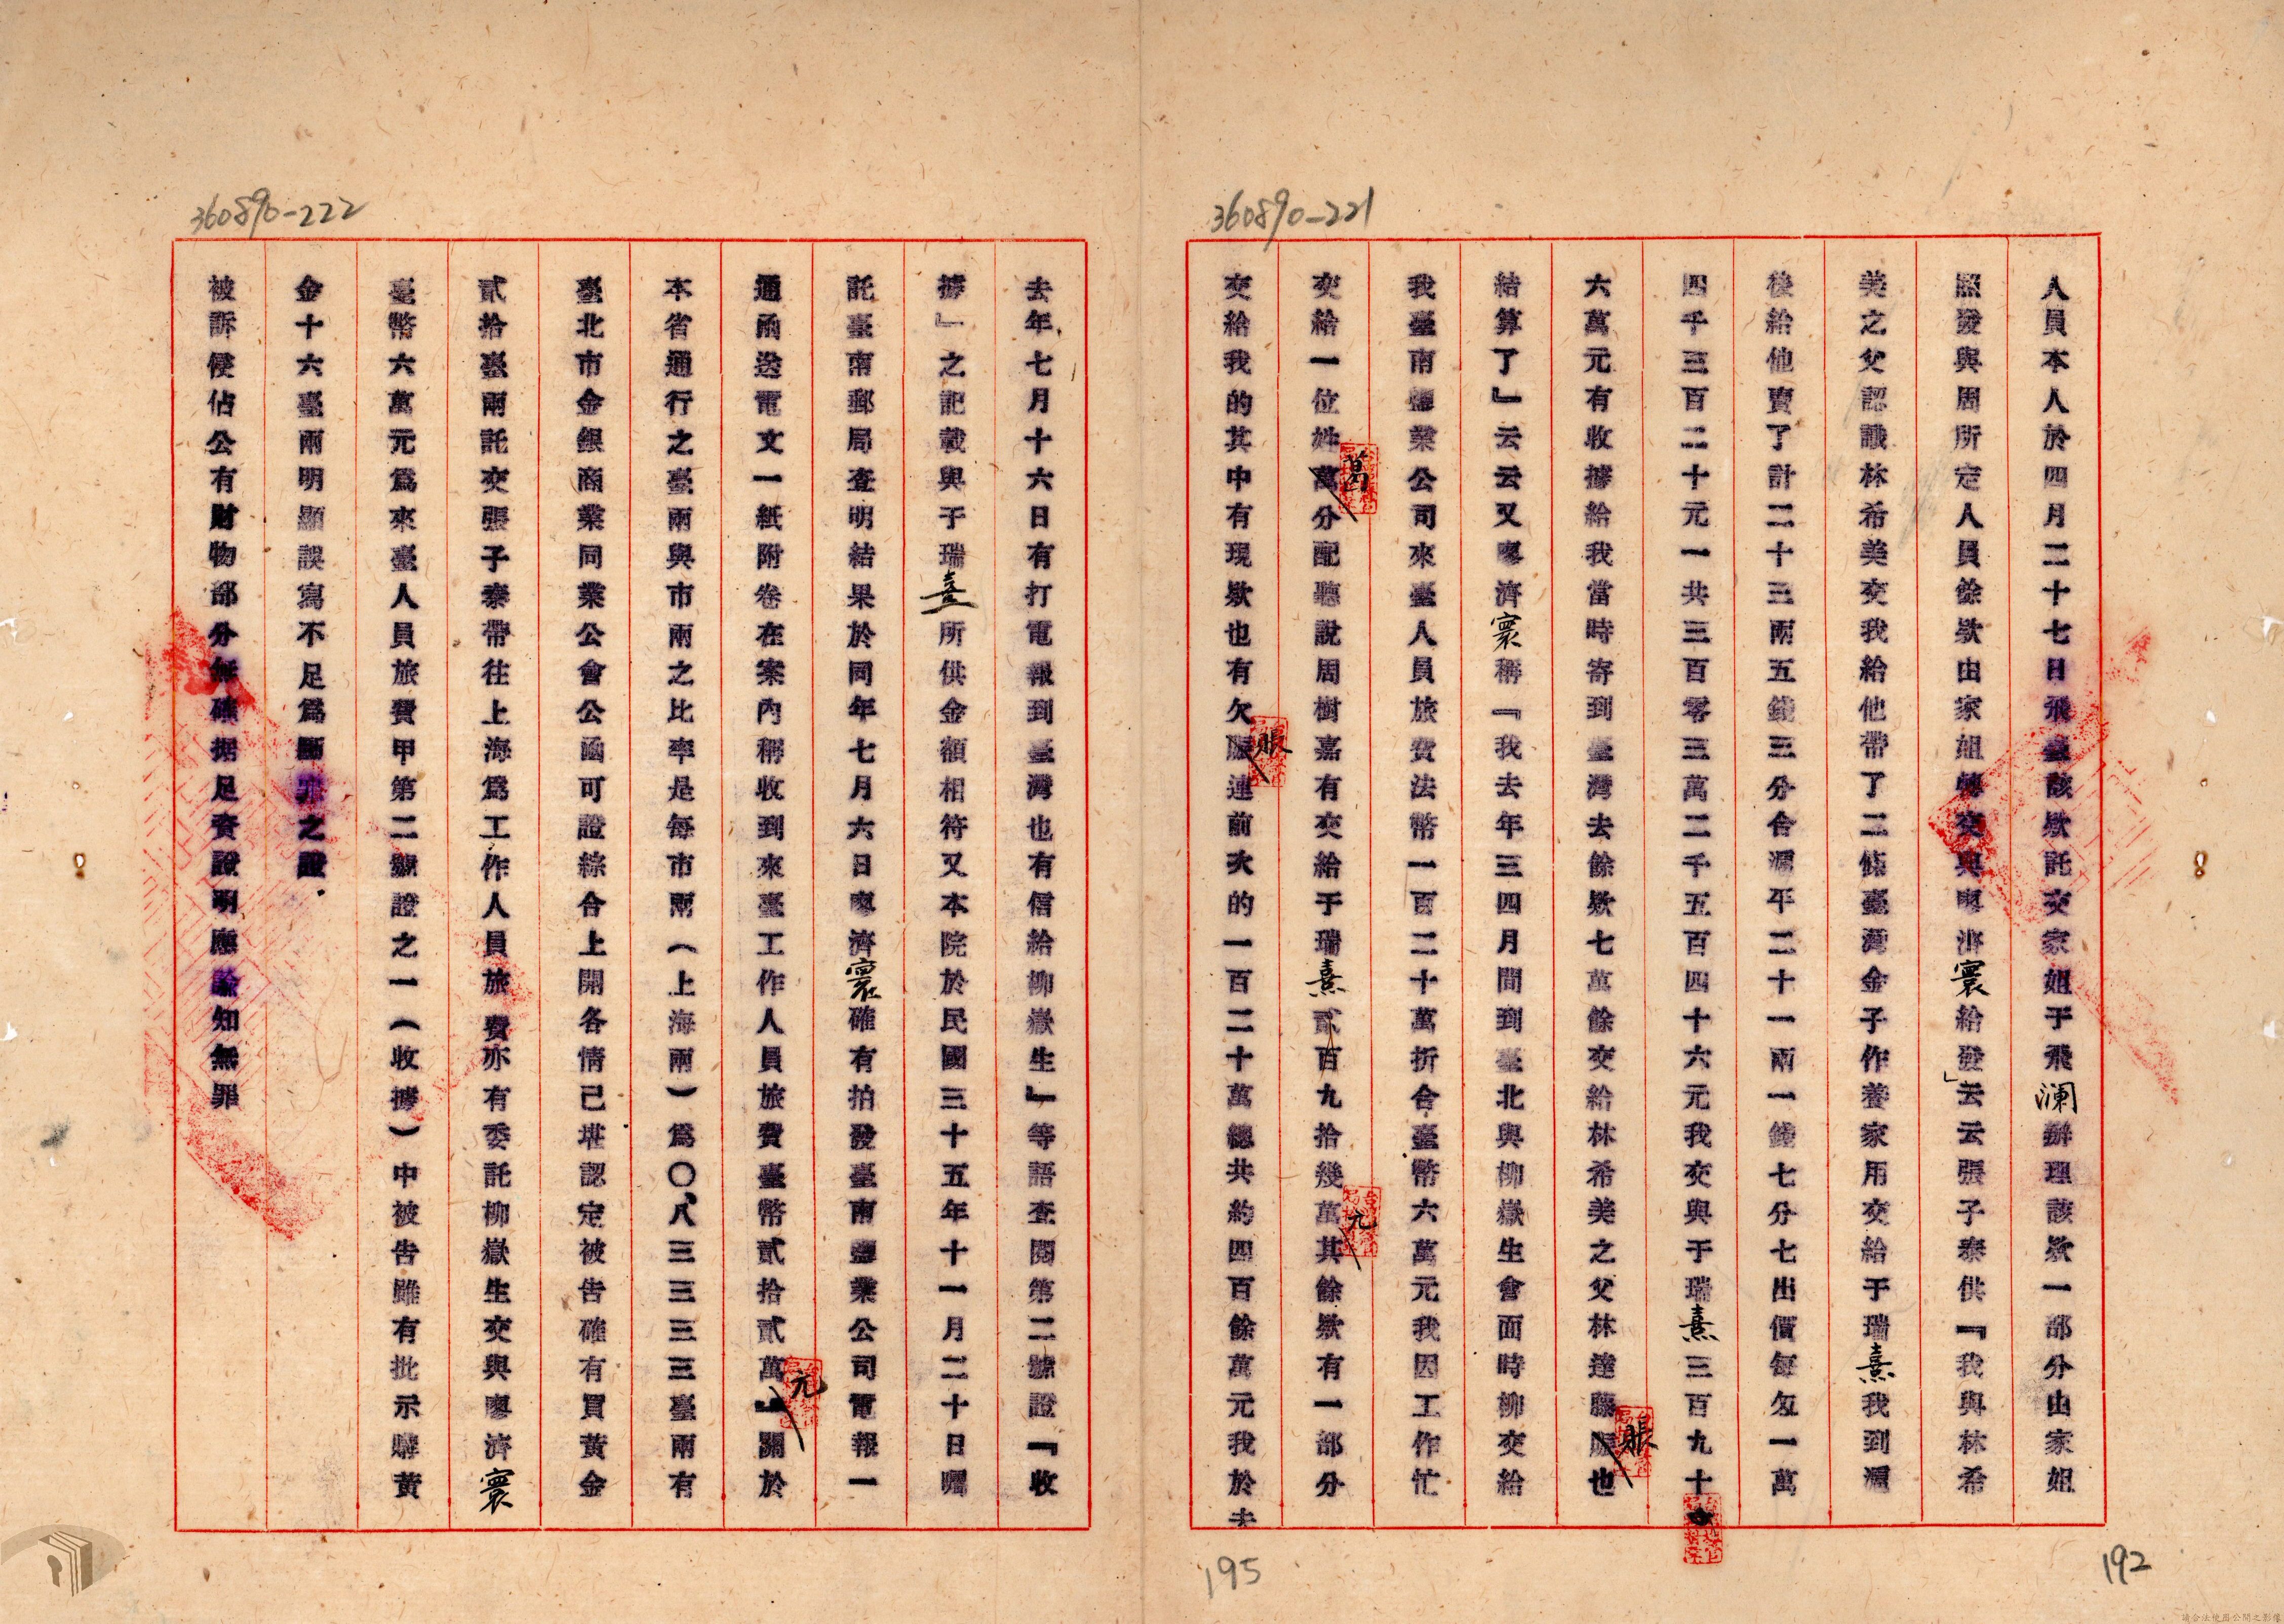 360890-221
人員本人於四月二十七日飛臺該欵託交家姐于飛澜辦理該欵一部分由家姐
照發與周所定人員餘欵由家姐轉交與廖濟寰給發」云云張子泰供『我與林希
美之父認識林希美交我給他帶了二條臺灣金子作養家用交給于瑞熹我到滬
後給他賣了計二十三兩五錢三分合滬平二十一兩一錢七分七出價每匁一萬
四千三百二十元一共三百零三萬二千五百四十六元我交與于瑞熹三百九十
六萬元有收據給我當時寄到臺灣去餘欵七萬餘交給林希美之父林達藤賬也
結算了』云云又廖濟寰稱『我去年三四月間到臺北與柳嶽生會面時柳交給
我臺南鹽業公司來臺人員旅費法幣一百二十萬折合臺幣六萬元我因工作忙
交給一位姓葛分配聽說周樹嘉有交給于瑞熹貳百九拾幾萬元其餘欵有一部分
交給我的其中有現欵也有欠賬連前次的一百二十萬總共約四百餘萬元我於去
192
195
360890-222
去年七月十六日有打電報到臺灣也有信給柳嶽生』等語查閱第二號證『收
據』之記載與于瑞熹所供金額相符又本院於民國三十五年十一月二十日囑
託臺南郵局查明結果於同年七月六日廖濟寰確有拍發臺南鹽業公司電報一
通函送電文一紙附卷在案內稱收到來臺工作人員旅費臺幣貳拾貳萬元』關於
本省通行之臺兩與市兩之比率是每市兩（上海兩）為〇、八三三三三臺兩有
臺北市金銀商業同業公會公函可證綜合上開各情已堪認定被告確有買黃金
貳拾臺兩託交張子泰帶往上海為工作人員旅費亦有委託柳嶽生交與廖濟寰
臺幣六萬元為來臺人員旅費甲第二號證之一（收據）中被告雖有批示購黃
金十六臺兩明顯誤寫不足為斷罪之證．
被訴侵佔公有財物部分無確据足資證明應諭知無罪